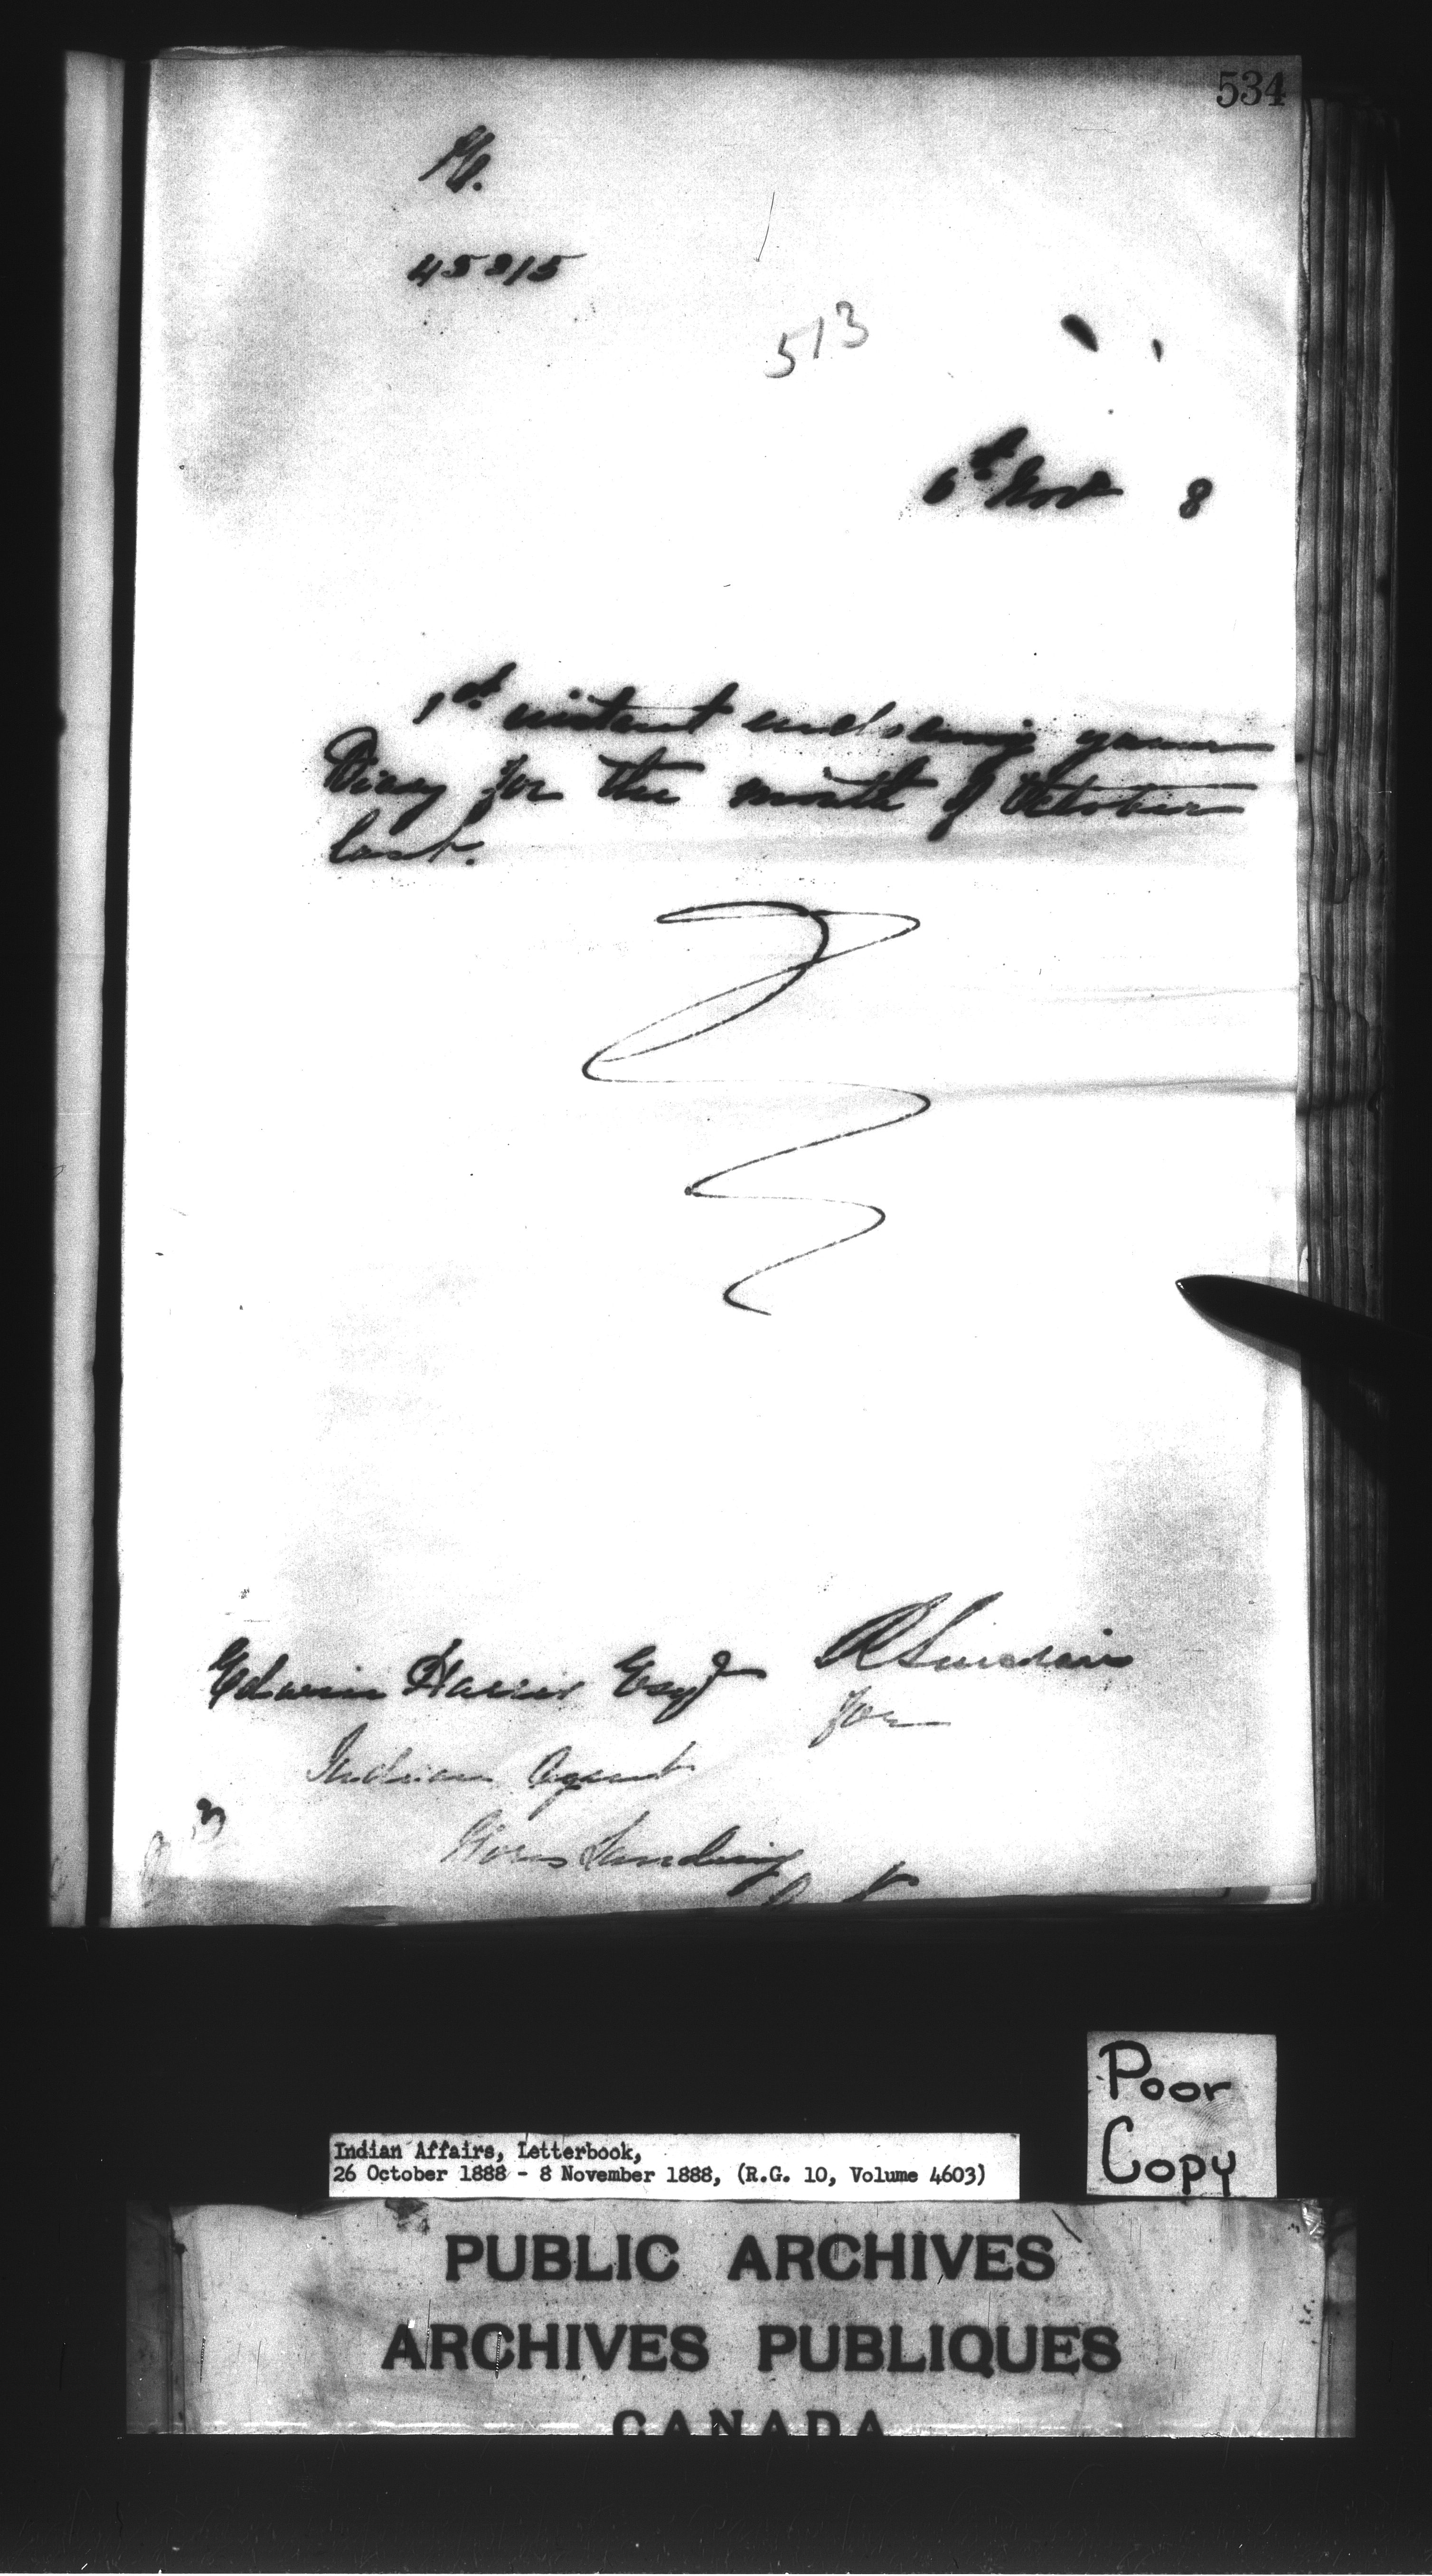 534
45315
513
6th Novr 8
1st instant enclosing your
Diary for the month of October
last.
Edwin Harris Esqr
R Sinclair
for
Indian Agent
Gores Landing
Ont
Poor
Copy
Indian Affairs, Letterbook,
26 October 1888 - 8 November 1888, (R.G. 10, Volume 4603)
PUBLIC ARCHIVES
ARCHIVES PUBLIQUES
CANADA